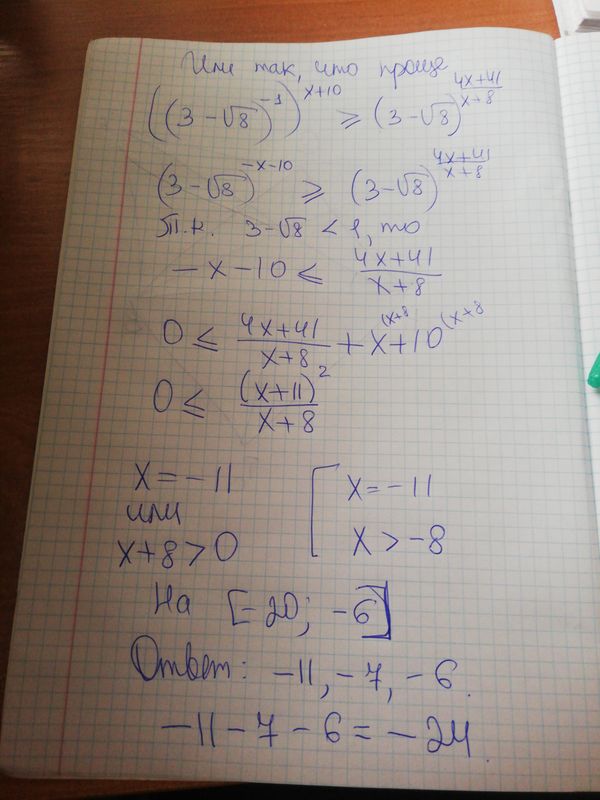 Или так, что проще
((3-√8)^-1)^x+10 ≥ (3-√8)^(4x+41)/(x+8)
(3-√8)^-x-10 ≥ (3-√8)^(4x+41)/(x+8)
Т.к. 3-√8 < 1, то
-x-10 ≤ (4x+41)/(x+8)
0 ≤ (4x+41)/(x+8) + x^(x+8 + 10^(x+8
0 ≤ (x+11)^2/(x+8)
x = -11
или
x+8 > 0
[ x = -11
x > -8
На [-20; -6]
Ответ: -11, -7, -6.
-11-7-6 = -24.